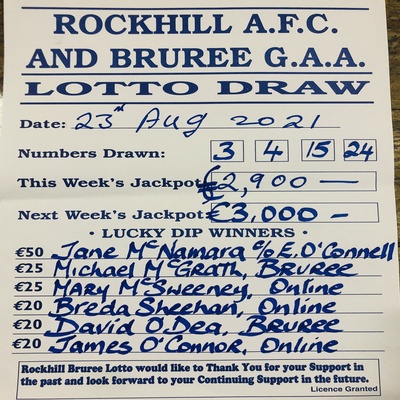 ROCKHILL A.F.C.
AND BRUREE G.A.A.
LOTTO DRAW
Date: 23rd Aug 2021
Numbers Drawn: 3 4 15 24
This Week's Jackpot €2,900 —
Next Week's Jackpot €3,000 —
• LUCKY DIP WINNERS •
€50 Jane McNamara c/o E. O'Connell
€25 Michael McGrath, BRUREE
€25 MARY McSweeney, Online
€20 Breda Sheehan, Online
€20 David O.Dea, BRUREE
€20 James O'Connor, Online
Rockhill Bruree Lotto would like to Thank You for your Support in
the past and look forward to your Continuing Support in the future.
Licence Granted